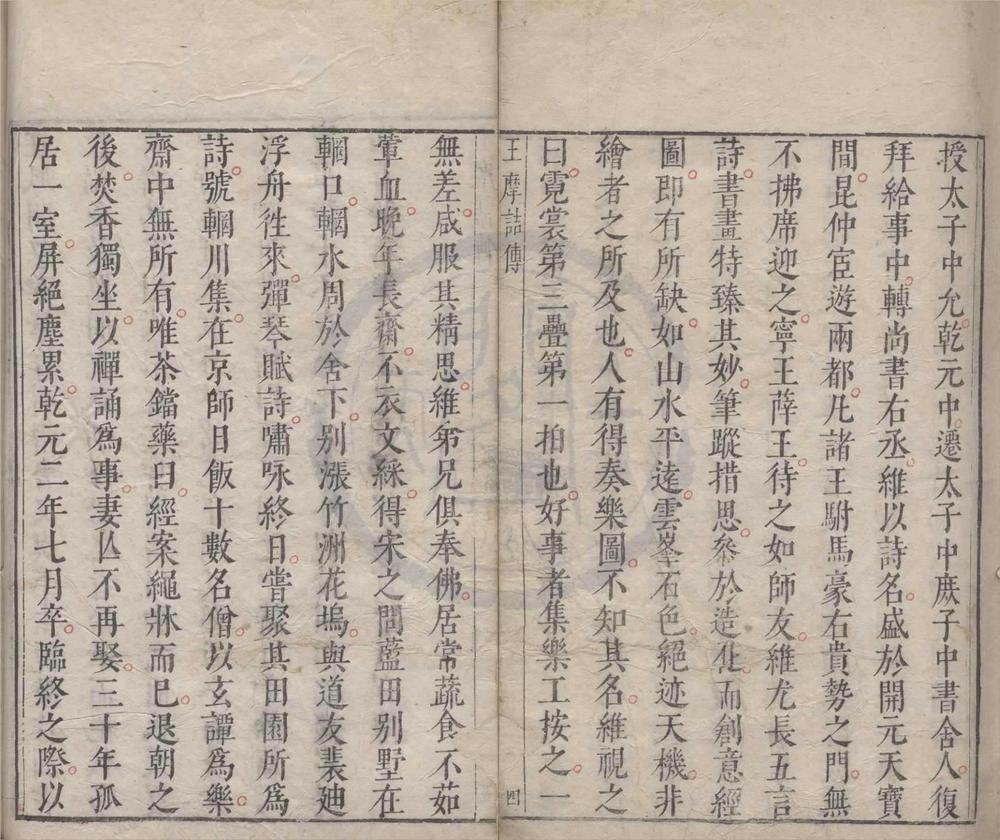 授太子中允乾元中遷太子中庻子中書舍人復
拜給事中轉尚書右丞維以詩名盛於開元天寶
間昆仲宦遊兩都凡諸王駙馬豪右貴勢之門無
不拂席迎之寧王薛王待之如師友維尤長五言
詩書畫特臻其妙筆蹤措思叅於造化而創意經
圖即有所缺如山水平逺雲峯石色絕迹天機非
繪者之所及也人有得奏樂圖不知其名維視之
曰霓裳第三疊第一拍也好事者集樂工按之一
王摩詰傳 四
無差咸服其精思維弟兄俱奉佛居常蔬食不茹
葷血晚年長齋不衣文綵得宋之問藍田別墅在
輞口輞水周於舍下別漲竹洲花塢與道友裴廸
浮舟徃來彈琴賦詩嘯咏終日嘗聚其田園所為
詩號輞川集在京師日飯十數名僧以玄譚為樂
齋中無所有唯茶鐺藥臼經案繩牀而已退朝之
後焚香獨坐以禪誦為事妻亾不再娶三十年孤
居一室屏絕塵累乾元二年七月卒臨終之際以